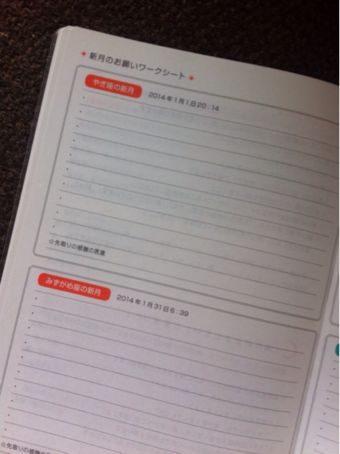 新月のお願いワークシート
やぎ座の新月 2014年1月1日20:14
☆先取りの感謝の言葉
みずがめ座の新月 2014年1月31日6:39
☆先取りの感謝の